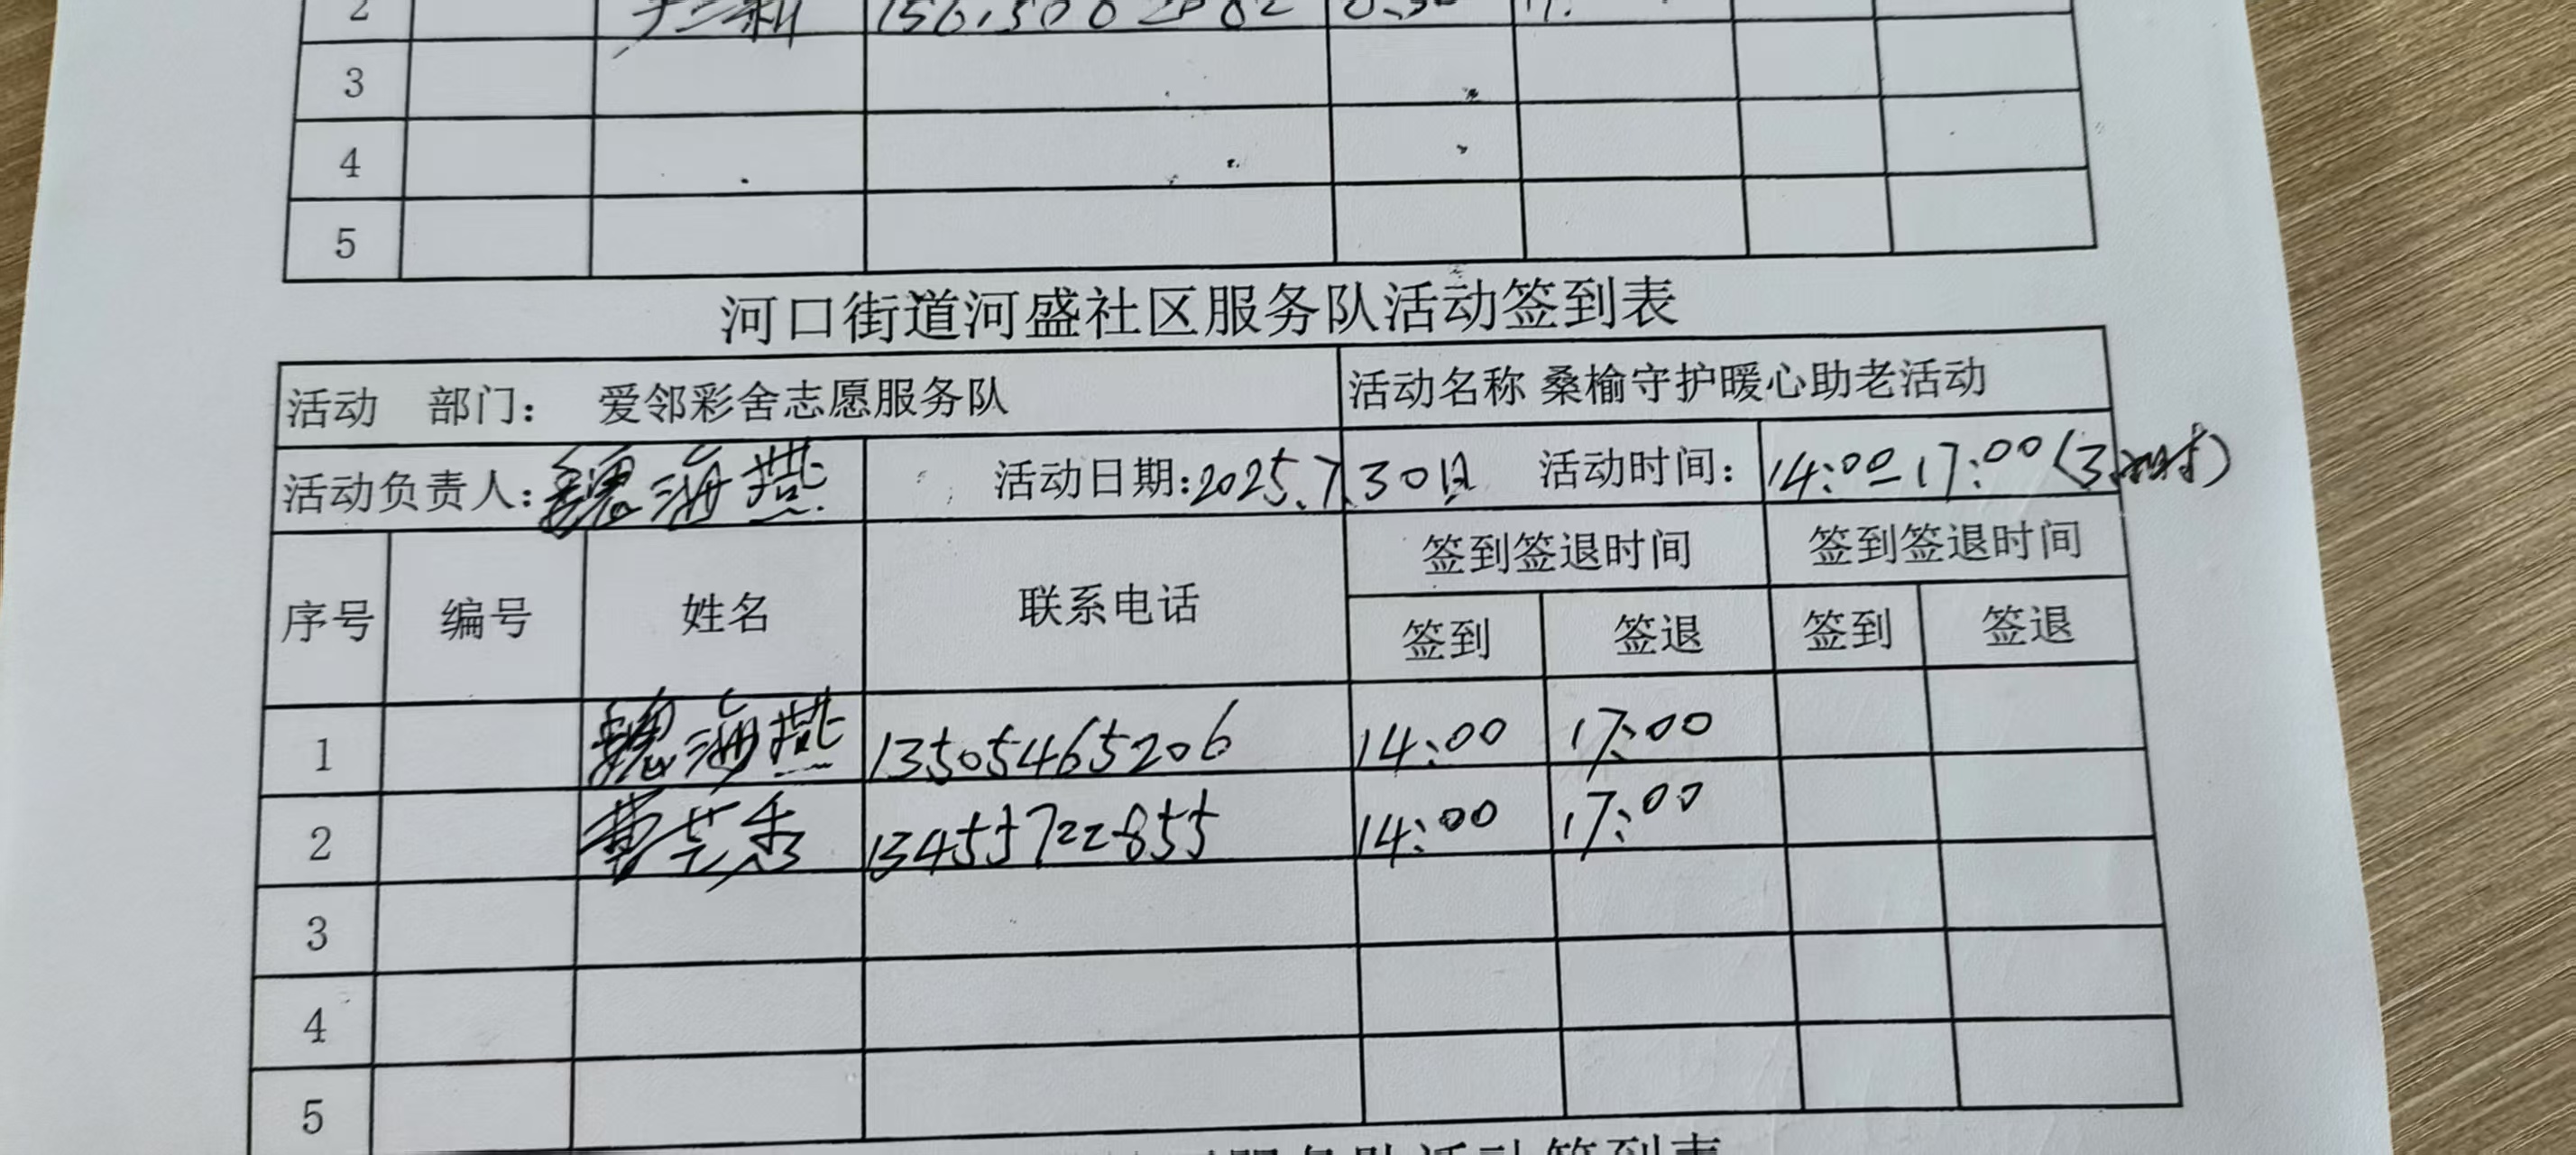 2
3
4
5
河口街道河盛社区服务队活动签到表
活动 部门： 爱邻彩舍志愿服务队 活动名称 桑榆守护暖心助老活动
活动负责人：魏海燕 活动日期：2025.7.30日 活动时间： 14:00-17:00(3小时)
序号 编号 姓名 联系电话 签到签退时间 签到签退时间
签到 签退 签到 签退
1 魏海燕 13505465206 14:00 17:00
2 曹芸香 13455722855 14:00 17:00
3
4
5
服务队活动签到表